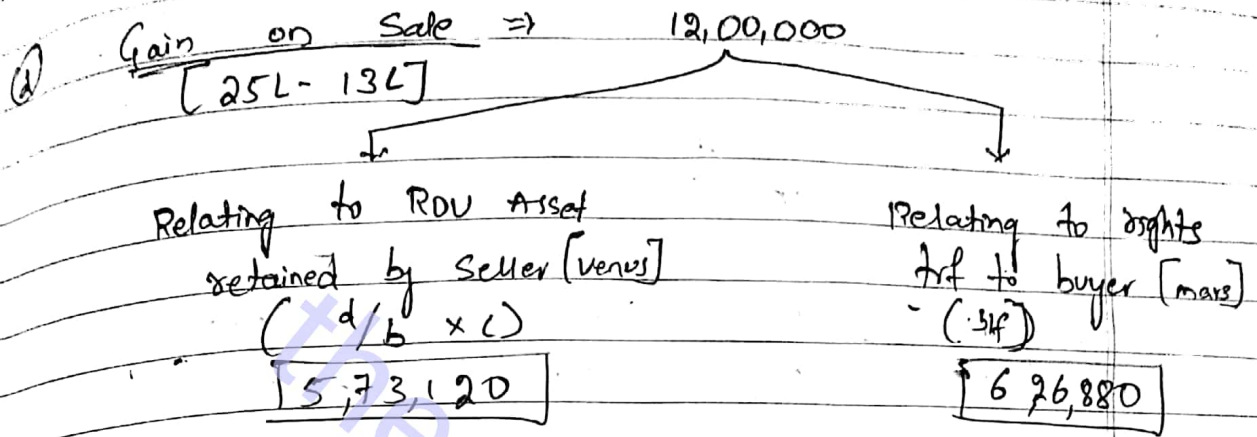 (d) Gain on Sale => 12,00,000
[25L - 13L]
Relating to ROU Asset
retained by Seller [venus]
(d/b x c)
5,73,120
Relating to rights
trf to buyer [mars]
(b/f)
6 26,880
the